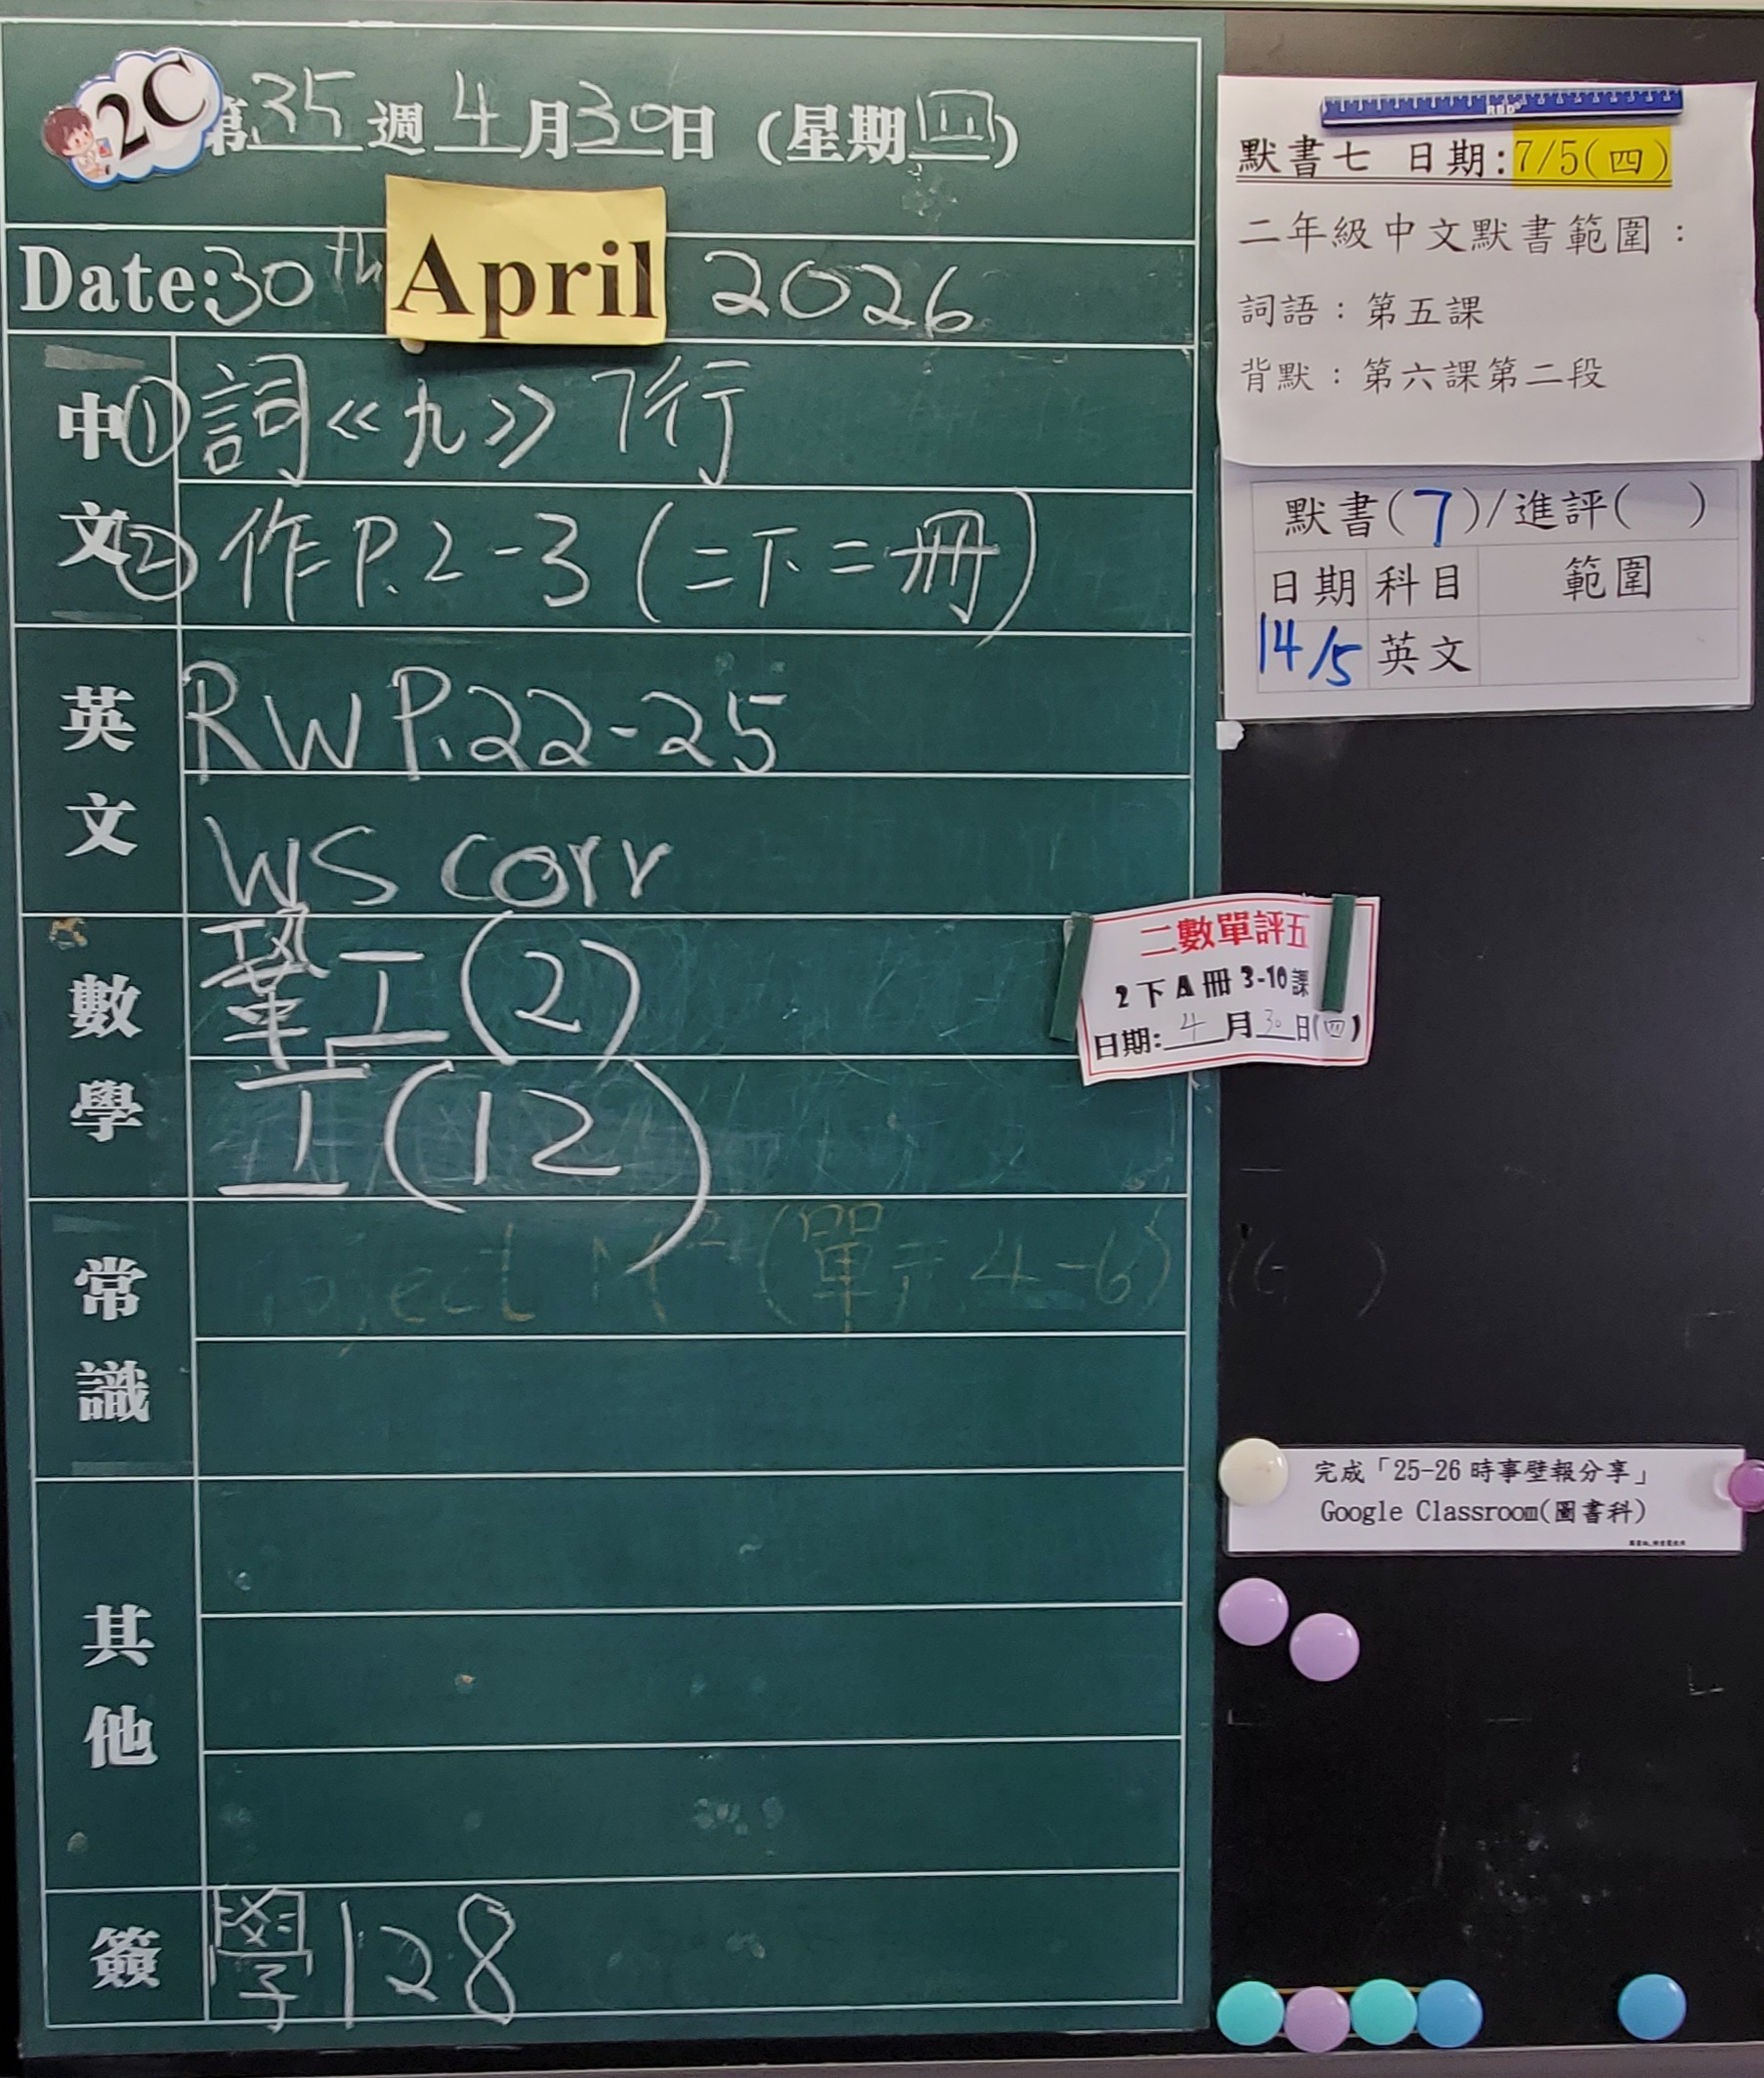 2C
第35週4月30日(星期四)
Date:30th April 2026
中文
①詞《九》7行
②作P.2-3(二下二冊)
英文
RWP.22-25
WS corr
數學
工(2)
工(12)
常識
(單元4-6)
其他
簽
學128
默書七 日期:7/5(四)
二年級中文默書範圍：
詞語：第五課
背默：第六課第二段
默書(7)/進評( )
日期 科目 範圍
14/5 英文
二數單評五
2下A冊3-10課
日期:4月30日(四)
完成「25-26時事壁報分享」
Google Classroom(圖書科)